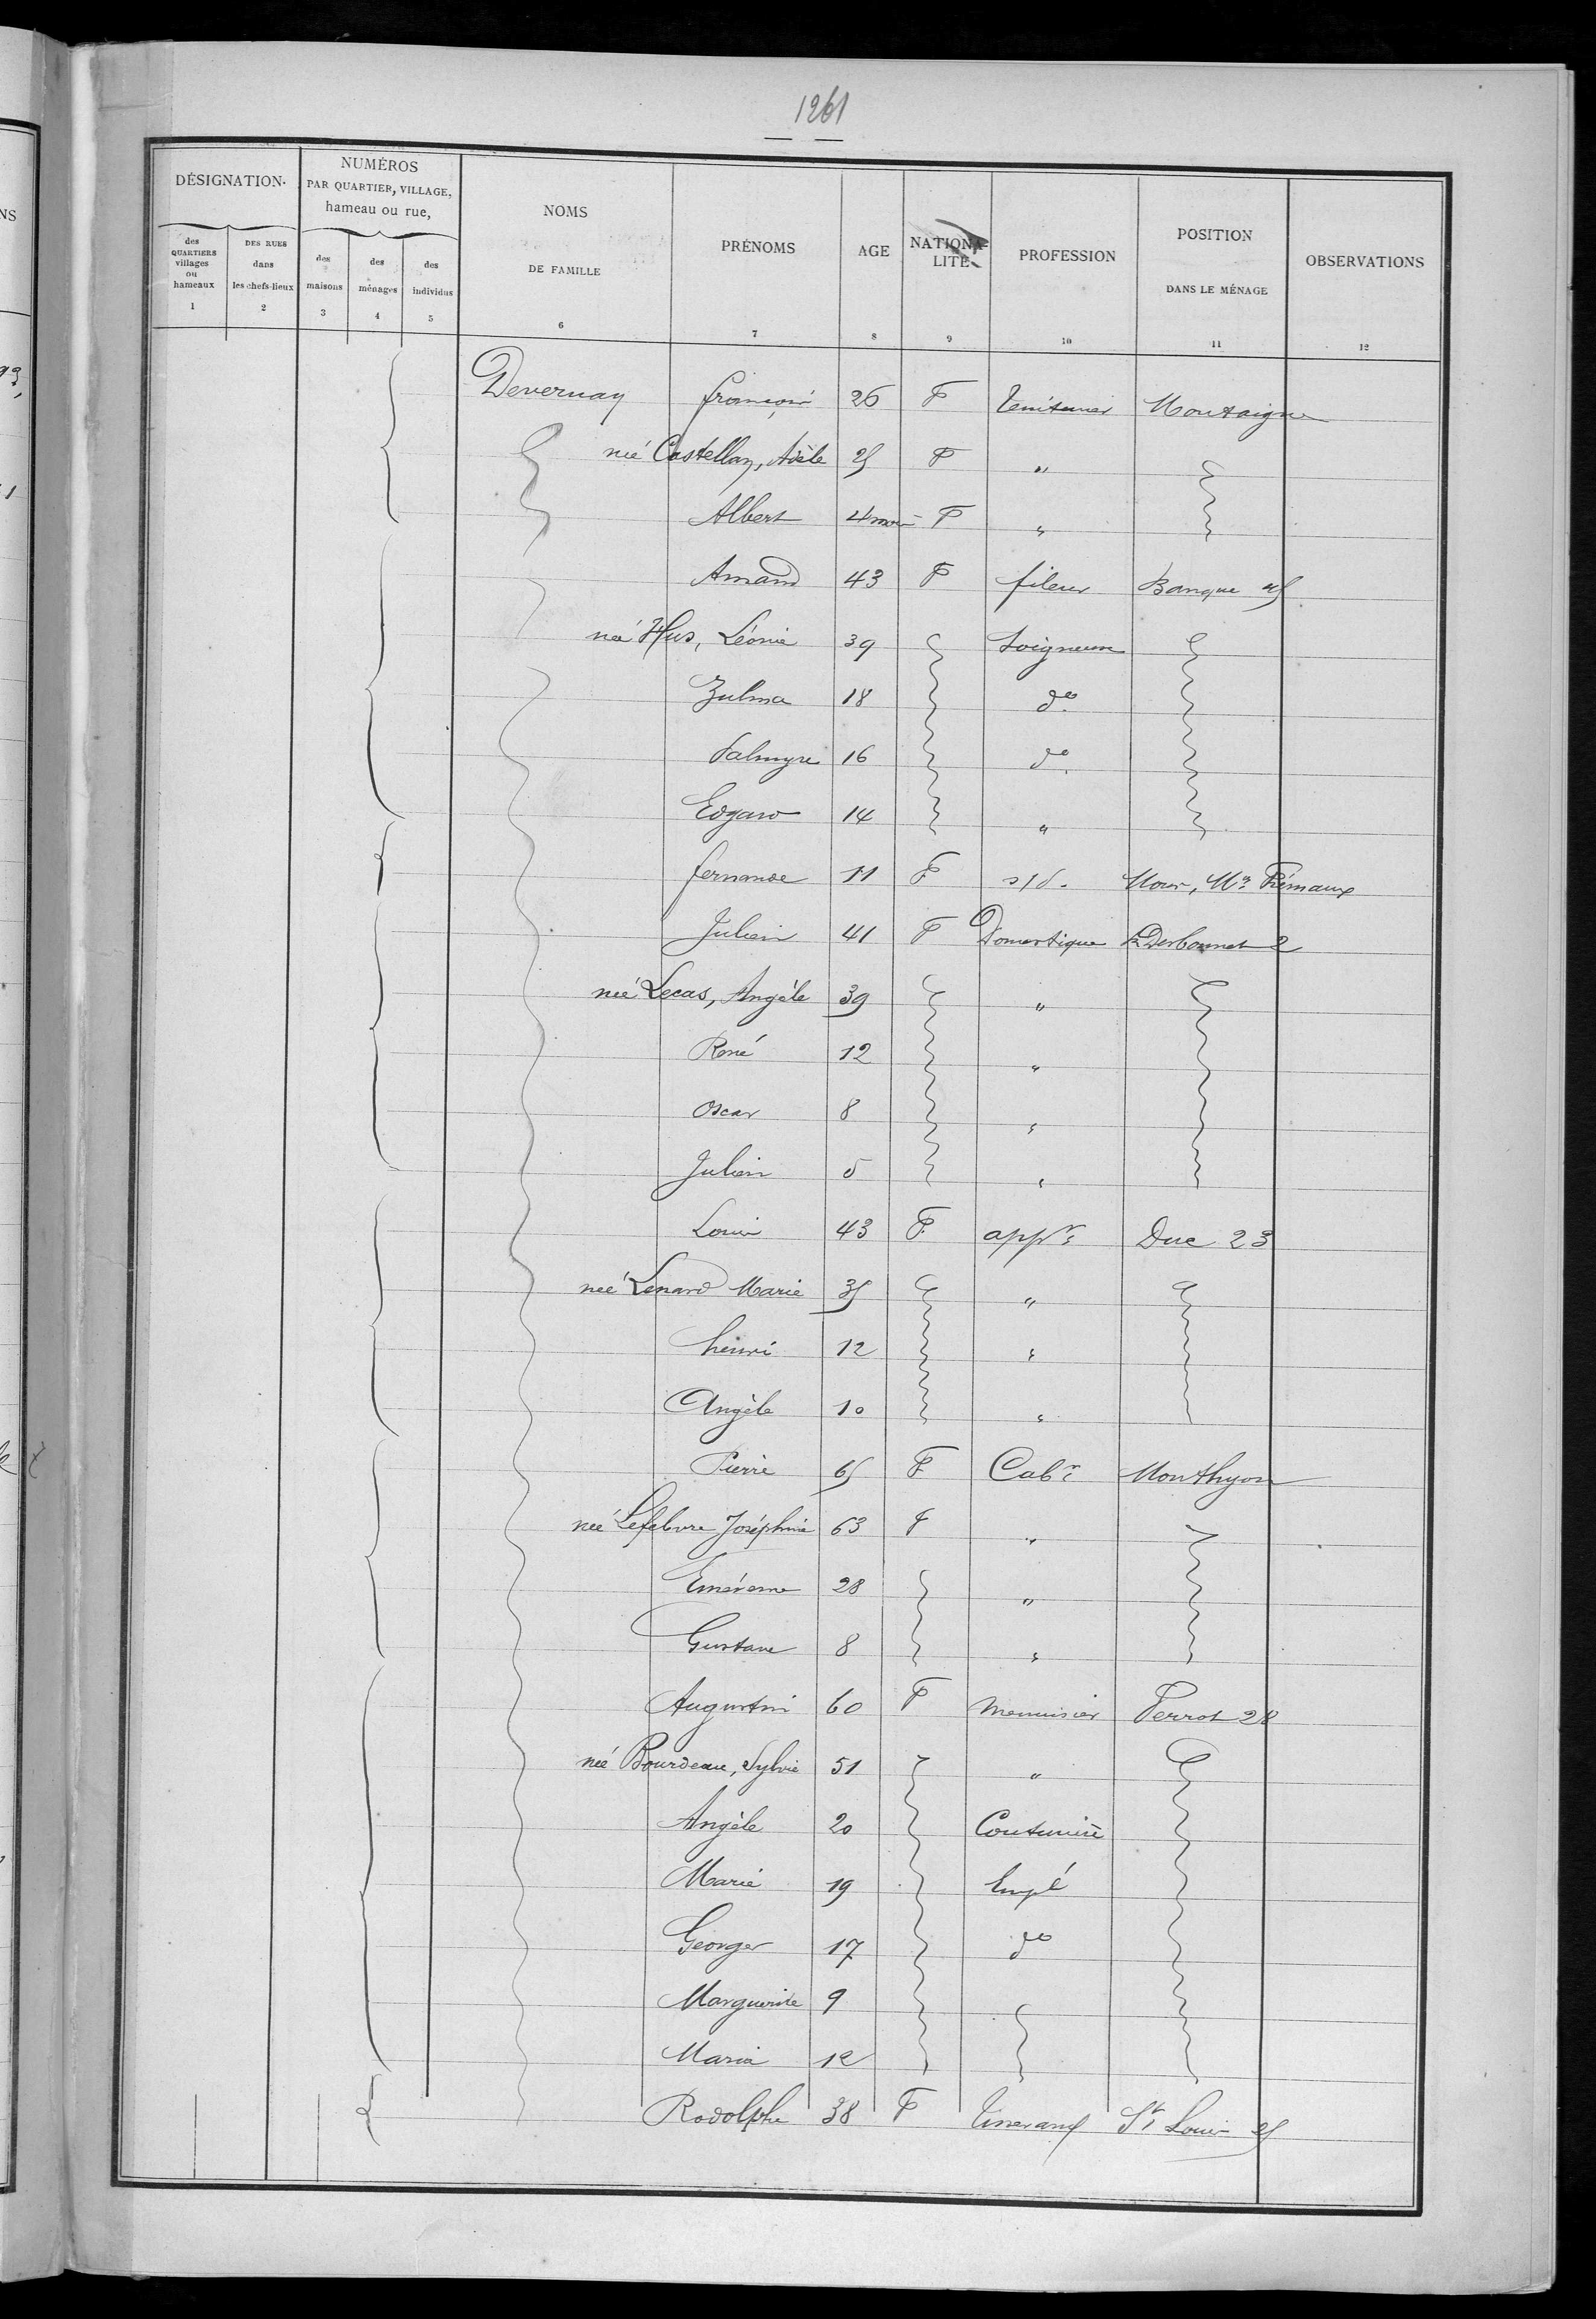 1261
DÉSIGNATION.
NUMÉROS PAR QUARTIER, VILLAGE, hameau ou rue,
NOMS DE FAMILLE 6
PRÉNOMS 7
AGE 8
NATIONALITÉ 9
PROFESSION 10
POSITION DANS LE MÉNAGE 11
OBSERVATIONS 12
des QUARTIERS villages ou hameaux 1
DES RUES dans les chefs-lieux 2
des maisons 3
des ménages 4
des individus 5
Devernay François 26 F Teinturier Montaigne
née Castellan, Adèle 25 F "
Albert 4 mois F "
Amand 43 F fileur Banque
née Hus, Léonie 39 Soigneuse
Zulma 18 do
Palmyre 16 do
Edgard 14 "
fernande 11 F s/d.
Julien 41 F Domestique 2
née Lecas, Angèle 39 "
René 12 "
Oscar 8 "
Julien 5 "
Louis 43 F appr Duc 23
née Lenard Marie 35 "
henri 12 "
Angèle 10 "
Pierre 65 F Cabr Monthyon
née Lefebvre Joséphine 63 F "
28 "
Gustave 8 "
Augustin 60 F menuisier Perrot 28
née Bourdeau, Sylvie 51 "
Angèle 20 Couturière
Marie 19 Empé
Georges 17 do
Marguerite 9
Maria 12
Rodolphe 38 F Tisserand St Louis